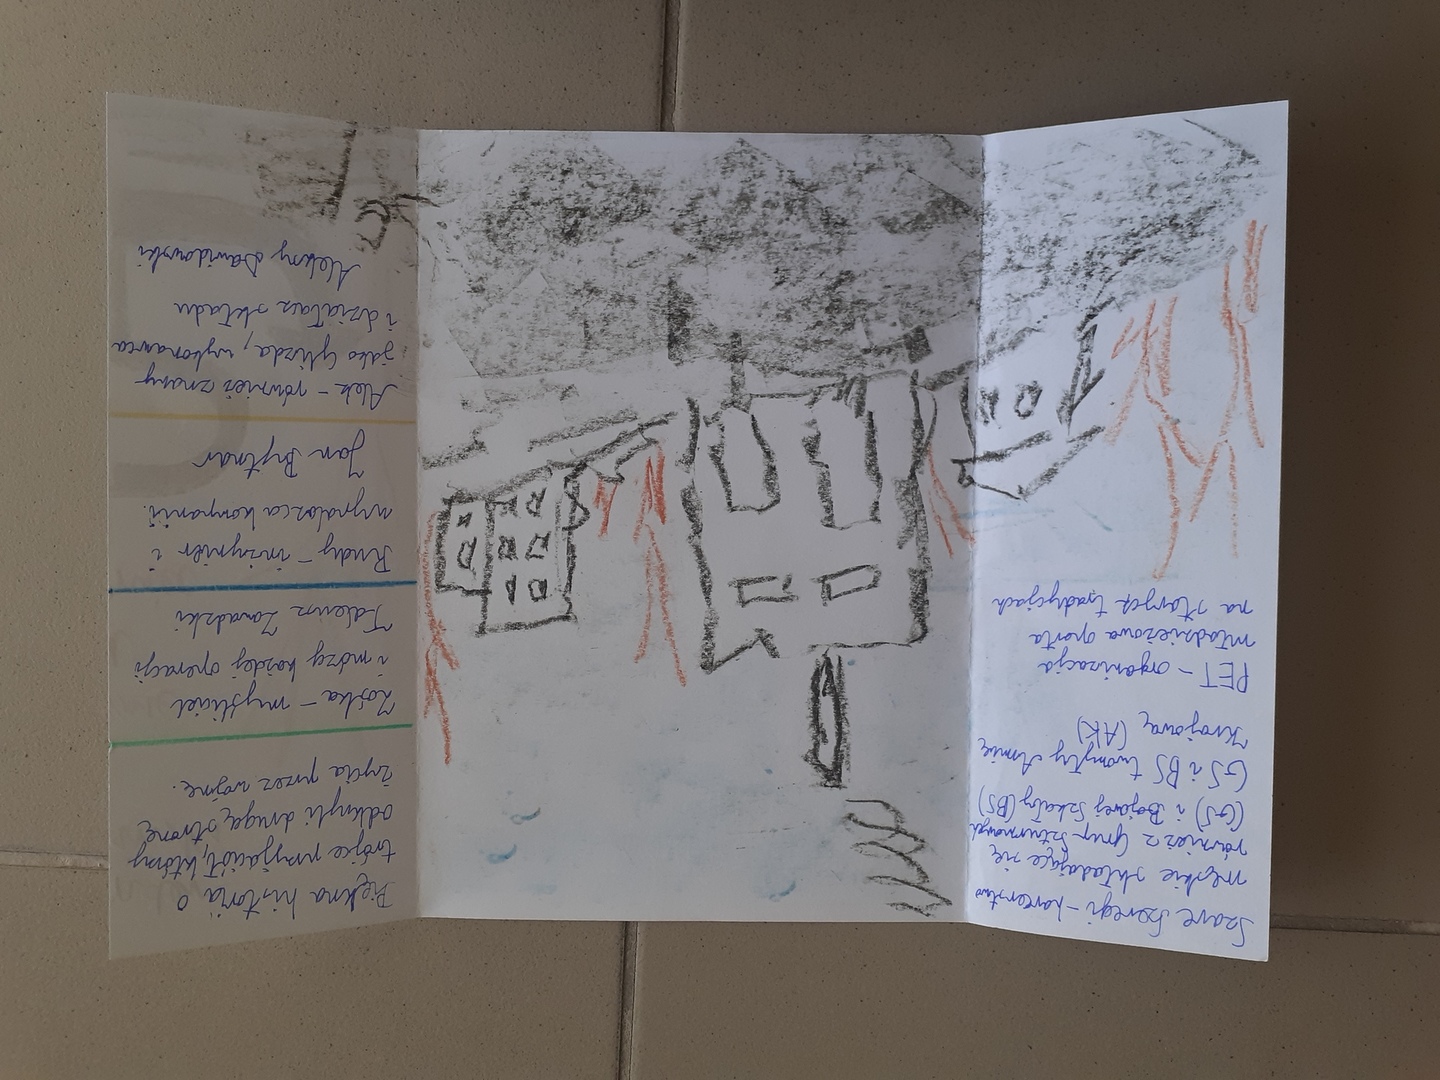 Szare Szeregi - harcerstwo
męskie składające się
również z Grup Szturmowych
(GS) i Bojowej Szkoły (BS)
GS i BS tworzyły Armię
Krajową (AK)
PET - organizacja
młodzieżowa oparta
na starych tradycjach
Piękna historia o
trójce przyjaciół, którzy
odkryli drugą stronę
życia przez wojnę.
Zośka - myśliciel
i mózg każdej operacji
Tadeusz Zawadzki
Rudy - inżynier i
wynalazca kompanii.
Jan Bytnar
Alek - również znany
jako Glizda, wykonawca
i działacz składu
Aleksy Dawidowski